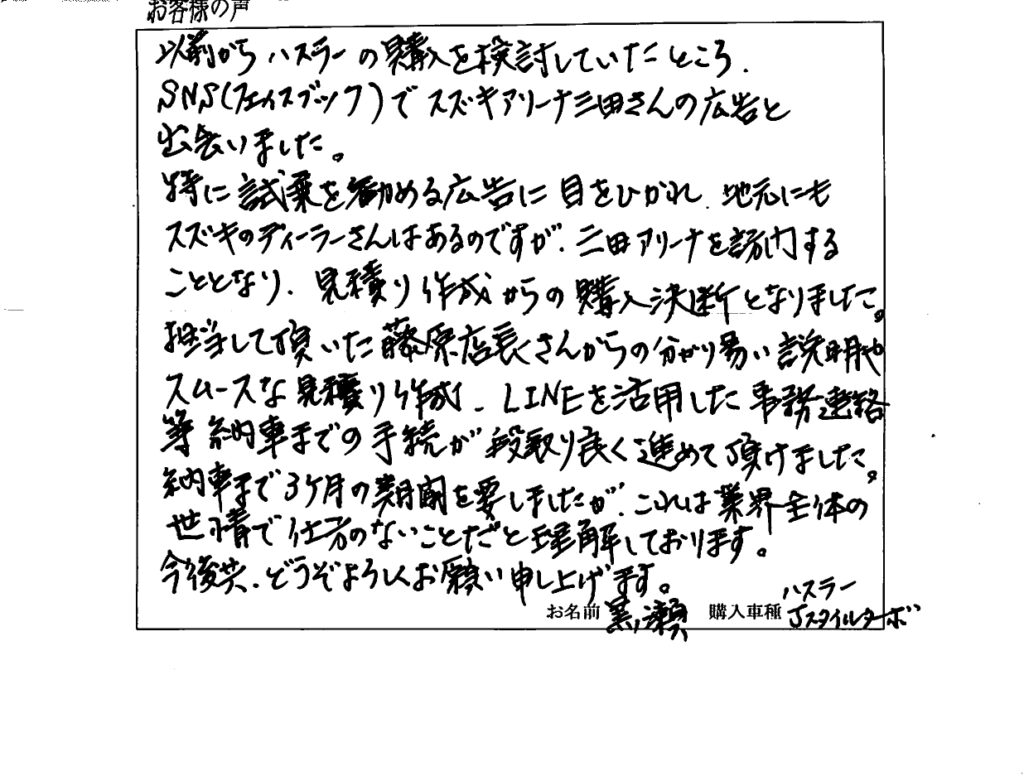 お客様の声
以前からハスラーの購入を検討していたところ、
SNS(フェイスブック)でスズキアリーナ三田さんの広告と
出会いました。
特に試乗を勧める広告に目をひかれ、地元にも
スズキのディーラーさんはあるのですが、三田アリーナを訪問する
こととなり、見積り作成からの購入決断となりました。
担当して頂いた藤原店長さんからの分かり易い説明や
スムースな見積り作成、LINEを活用した事務連絡
等納車までの手続が段取り良く進めて頂けました。
納車まで3ケ月の期間を要しましたが、これは業界全体の
世情で仕方のないことだと理解しております。
今後共、どうぞよろしくお願い申し上げます。
お名前 黒瀬 購入車種 ハスラー
Jスタイルターボ